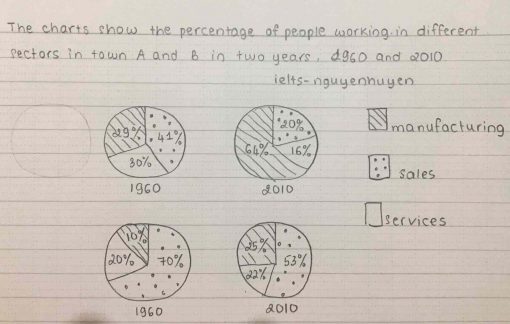 The charts show the percentage of people working in different
sectors in town A and B in two years, 1960 and 2010
ielts-nguyenhuyen
29% 41% 30%
1960
20% 64% 16%
2010
manufacturing
sales
services
10% 20% 70%
1960
25% 53% 22%
2010